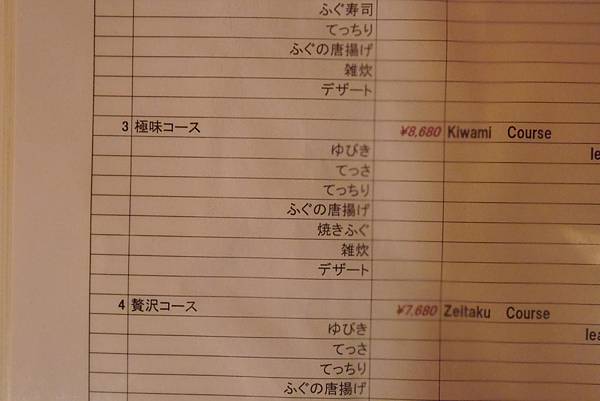 ふぐ寿司
てっちり
ふぐの唐揚げ
雑炊
デザート
3 極味コース ¥8,680 Kiwami Course
ゆびき
てっさ
てっちり
ふぐの唐揚げ
焼きふぐ
雑炊
デザート
4 贅沢コース ¥7,680 Zeitaku Course
ゆびき
てっさ
てっちり
ふぐの唐揚げ